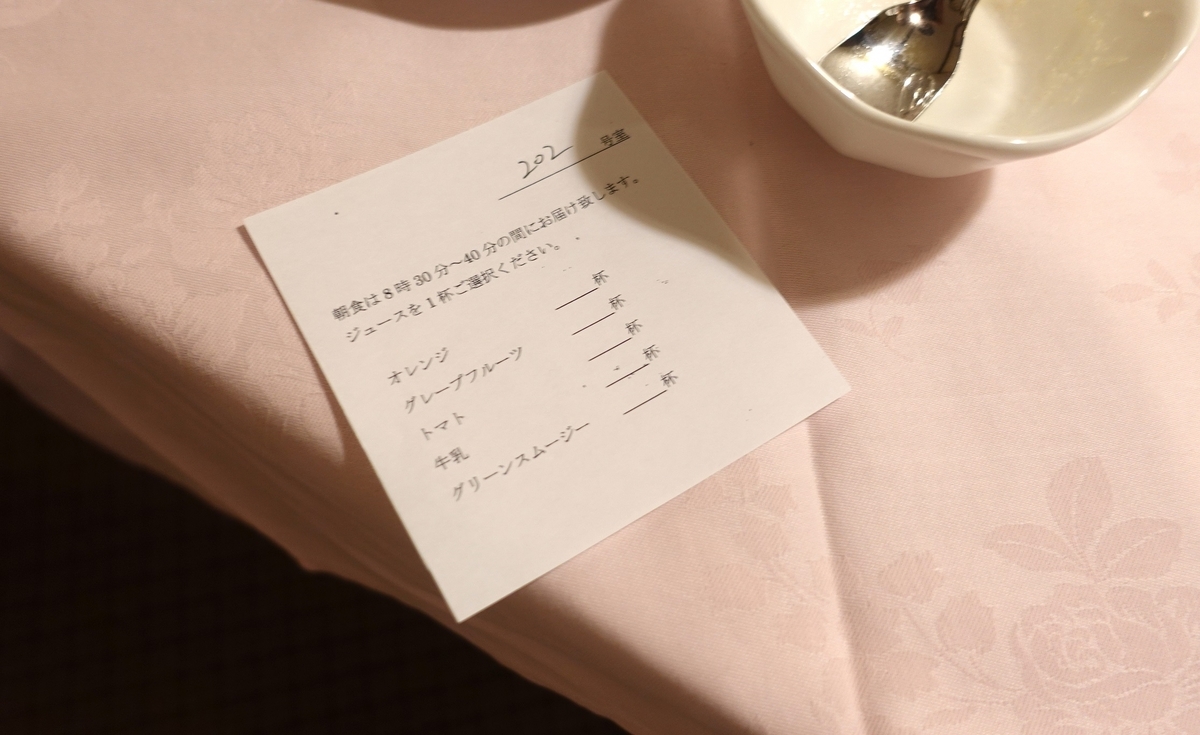 202 号室
朝食は8時30分～40分の間にお届け致します。
ジュースを1杯ご選択ください。
オレンジ ＿＿＿杯
グレープフルーツ ＿＿＿杯
トマト ＿＿＿杯
牛乳 ＿＿＿杯
グリーンスムージー ＿＿＿杯